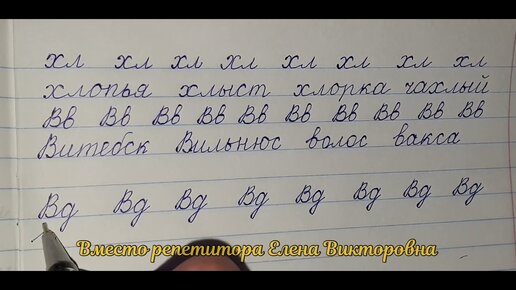 хл хл хл хл хл хл хл хл
хлопья хлыст хлорка чахлый
Вв Вв Вв Вв Вв Вв Вв Вв Вв Вв
Витебск Вильнюс волос вакса
Вд Вд Вд Вд Вд Вд Вд Вд
Вместо репетитора Елена Викторовна